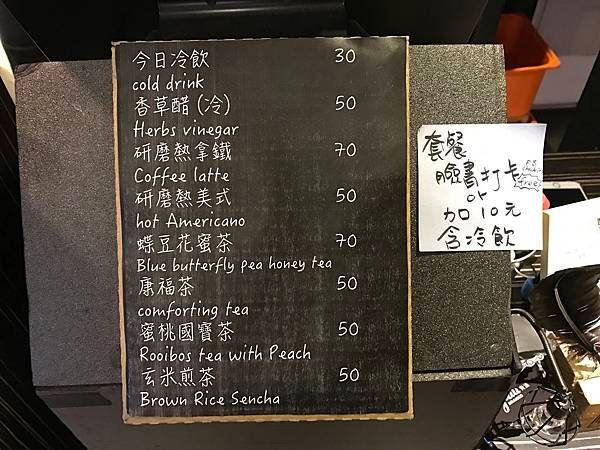 今日冷飲 30
cold drink
香草醋(冷) 50
Herbs vinegar
研磨熱拿鐵 70
Coffee latte
研磨熱美式 50
hot Americano
蝶豆花蜜茶 70
Blue butterfly pea honey tea
康福茶 50
comforting tea
蜜桃國寶茶 50
Rooibos tea with Peach
玄米煎茶 50
Brown Rice Sencha
套餐
臉書打卡
or
加10元
含冷飲